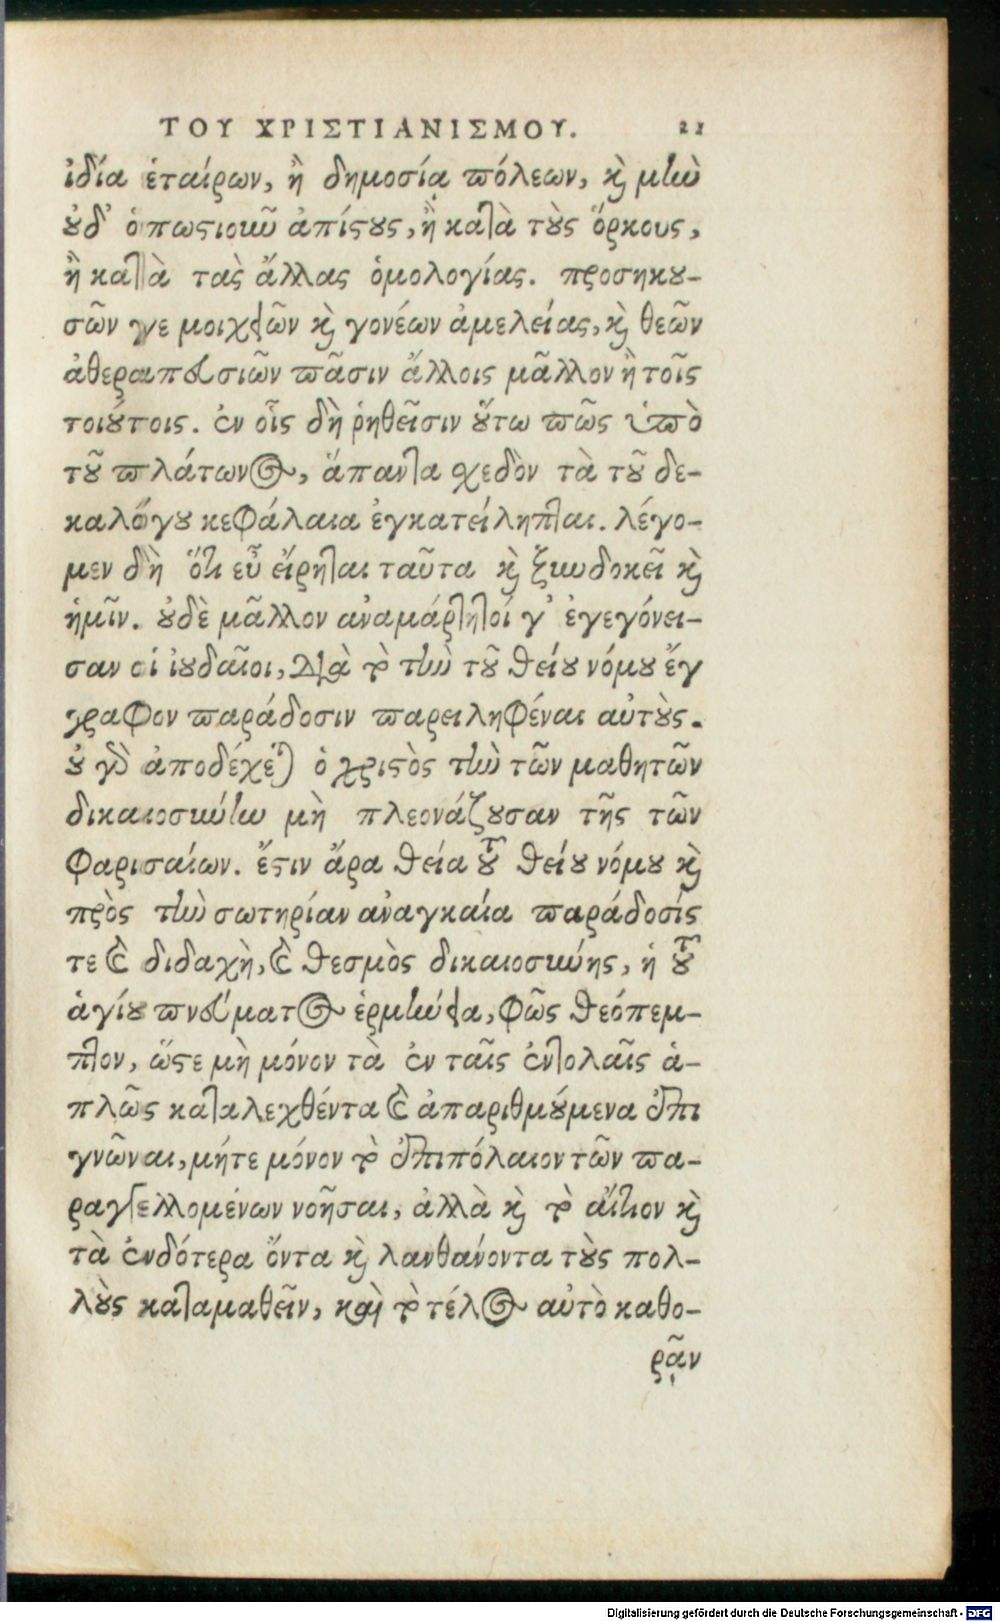 ΤΟΥ ΧΡΙΣΤΙΑΝΙΣΜΟΥ. 21
ἰδία ἑταίρων, ἢ δημοσίᾳ πόλεων, καὶ μὴν
οὐδ' ὁπωστιοῦν ἀπίστους, ἢ κατὰ τοὺς ὅρκους,
ἢ κατὰ τὰς ἄλλας ὁμολογίας. προσηκου-
σῶν γε μοιχειῶν καὶ γονέων ἀμελείας, καὶ θεῶν
ἀθεραπευσιῶν πᾶσιν ἄλλοις μᾶλλον ἢ τοῖς
τοιούτοις. ἐν οἷς δὴ ῥηθεῖσιν οὕτω πῶς ὑπὸ
τοῦ πλάτωνος, ἅπαντα σχεδὸν τὰ τοῦ δε-
καλόγου κεφάλαια ἐγκατείληπται. λέγο-
μεν δὴ ὅτι εὖ εἴρηται ταῦτα καὶ ξυνδοκεῖ καὶ
ἡμῖν. οὐδὲ μᾶλλον ἀναμάρτητοί γ' ἐγεγόνει-
σαν οἱ ἰουδαῖοι, διὰ τὸ τὴν τοῦ θείου νόμου ἔγ
γραφον παράδοσιν παρειληφέναι αὐτούς.
οὐ γὰρ ἀποδέχεται ὁ χριστὸς τὴν τῶν μαθητῶν
δικαιοσύνην μὴ πλεονάζουσαν τῆς τῶν
φαρισαίων. ἔστιν ἄρα θεία τοῦ θείου νόμου καὶ
πρὸς τὴν σωτηρίαν ἀναγκαία παράδοσίς
τε καὶ διδαχὴ, καὶ θεσμὸς δικαιοσύνης, ἡ τοῦ
ἁγίου πνεύματος ἑρμηνεία, φῶς θεόπεμ-
πτον, ὥστε μὴ μόνον τὰ ἐν ταῖς ἐντολαῖς ἁ-
πλῶς καταλεχθέντα καὶ ἀπαριθμούμενα ἐπι
γνῶναι, μήτε μόνον τὸ ἐπιπόλαιον τῶν πα-
ραγγελλομένων νοῆσαι, ἀλλὰ καὶ τὸ αἴτιον καὶ
τὰ ἐνδότερα ὄντα καὶ λανθάνοντα τοὺς πολ-
λοὺς καταμαθεῖν, καὶ τὸ τέλος αὐτὸ καθο-
ρᾷν
Digitalisierung gefördert durch die Deutsche Forschungsgemeinschaft - DFG